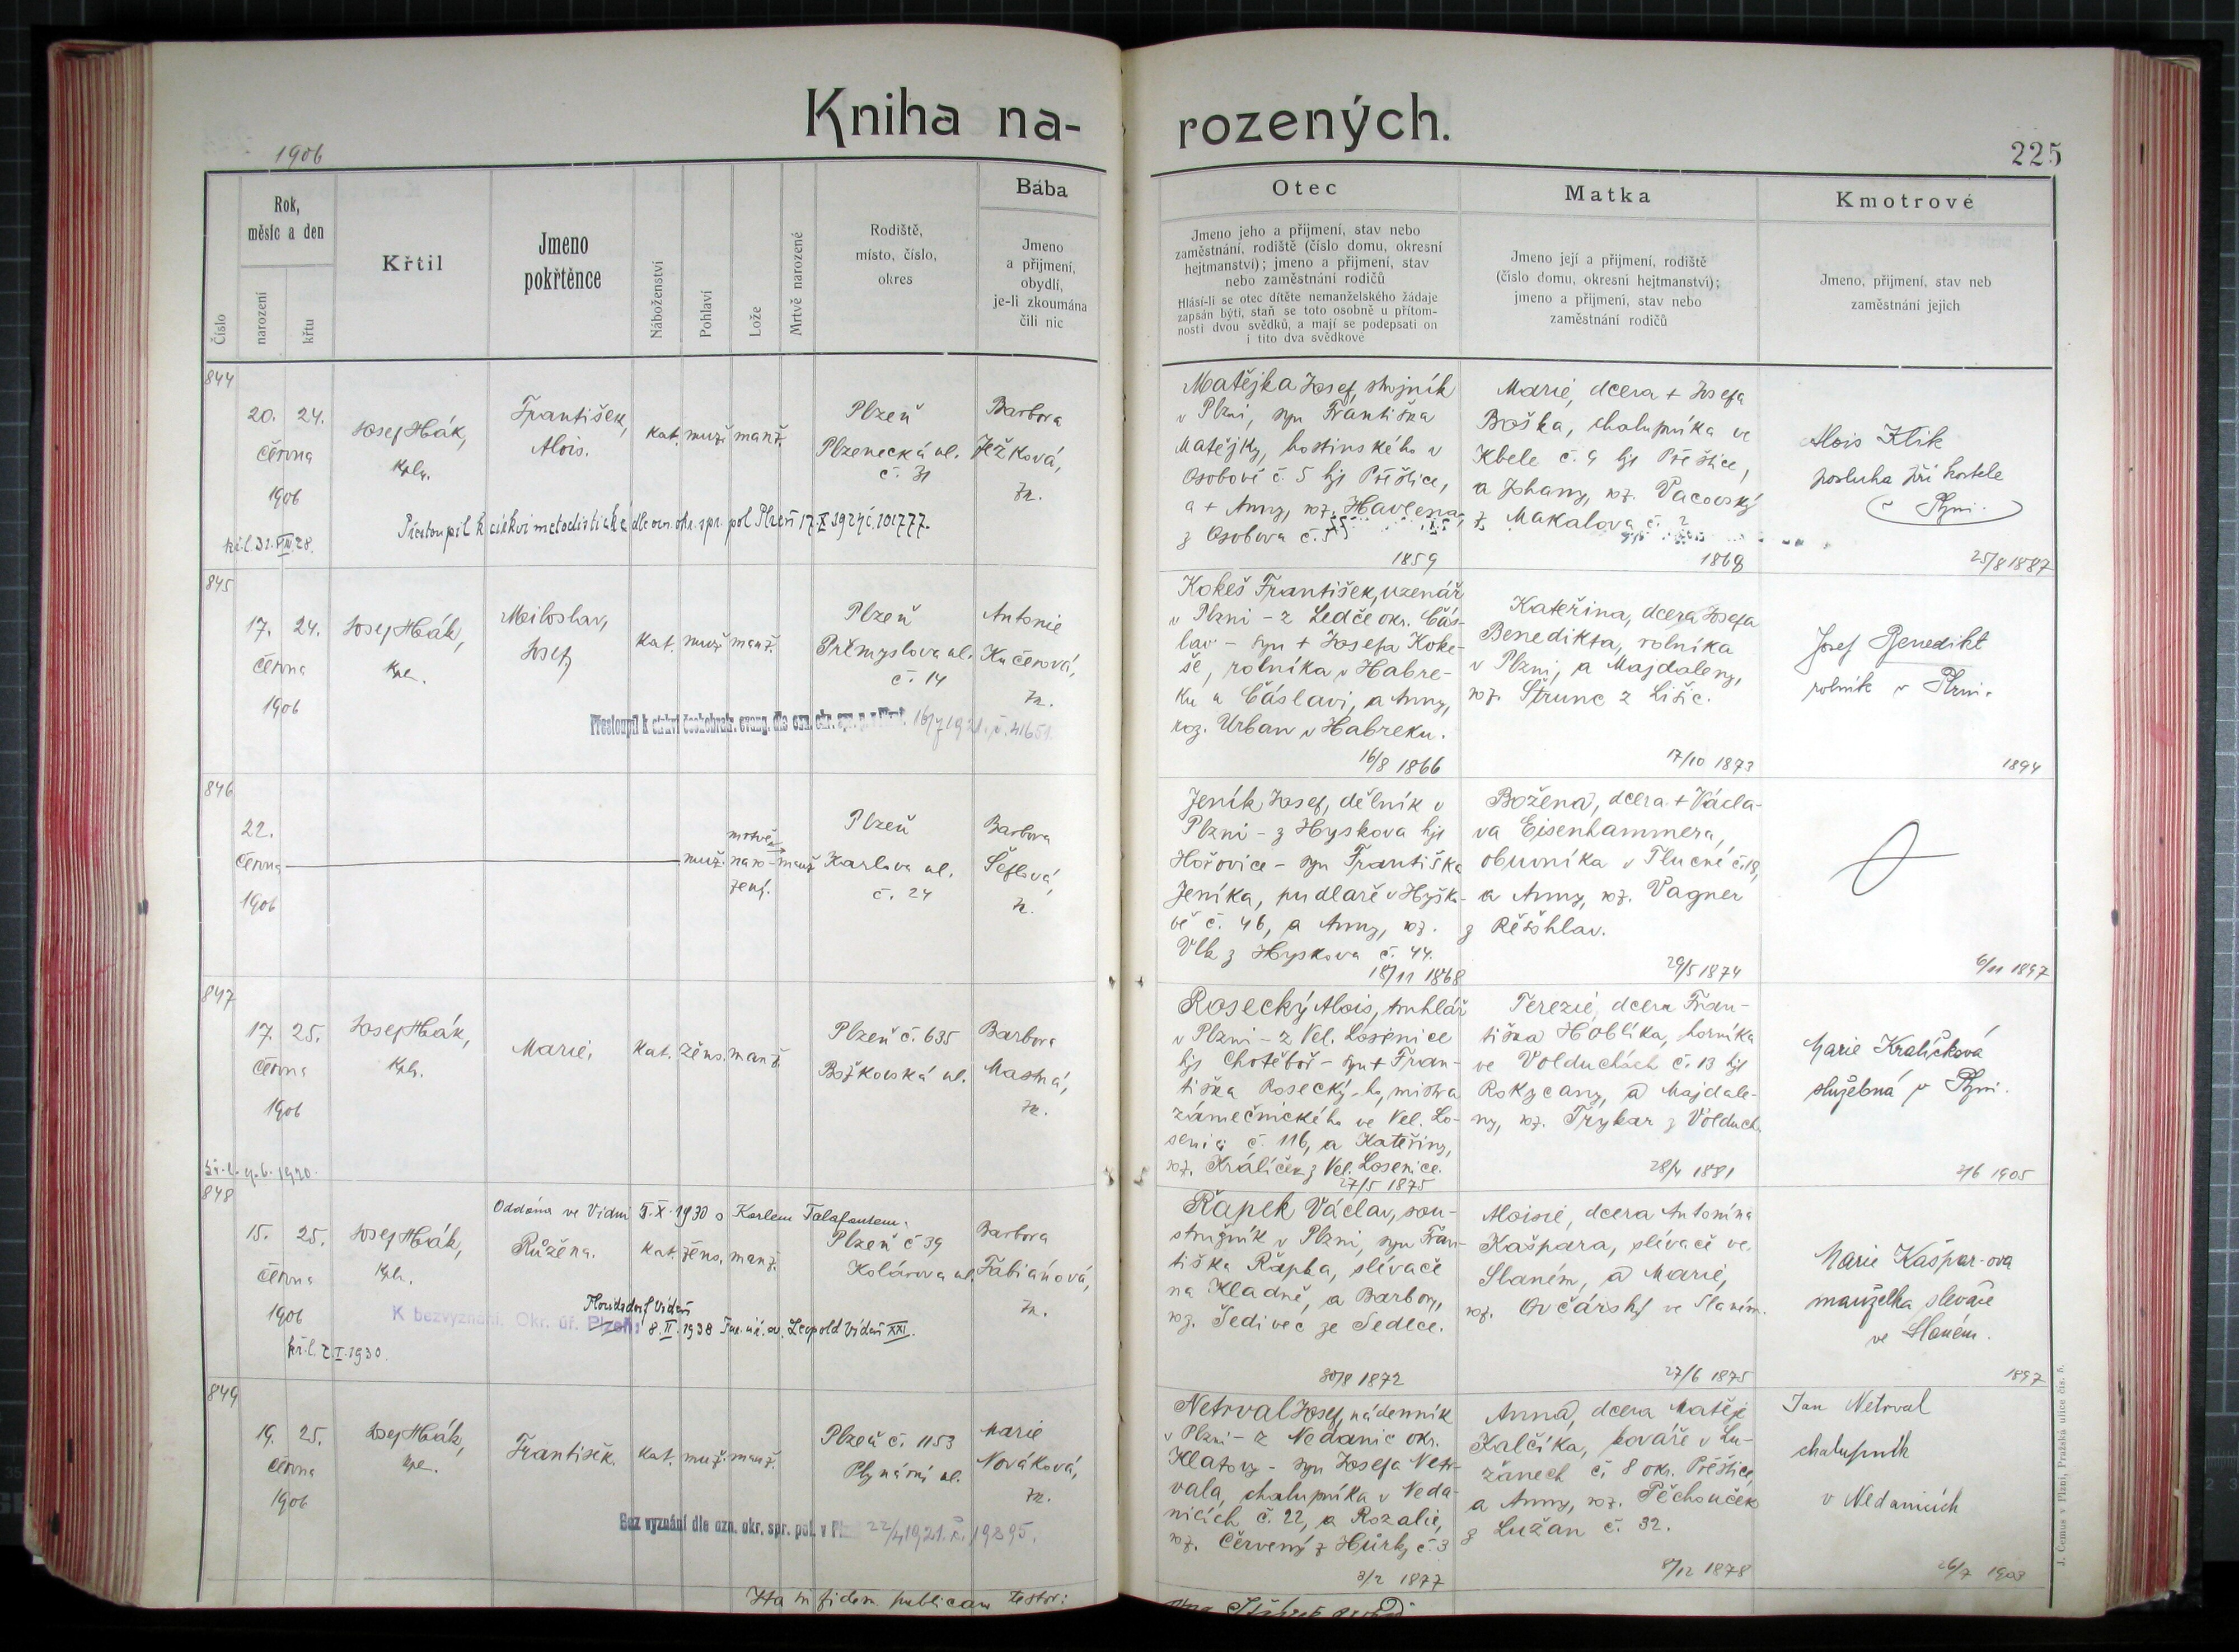 Kniha na-
rozených.
1906
225
Číslo
Rok,
měsíc a den
narození
křtu
Křtil
Jmeno
pokřtěnce
Náboženství
Pohlaví
Lože
Mrtvě narozené
Rodiště,
místo, číslo,
okres
Bába
Jmeno
a přijmení,
obydlí,
je-li zkoumána
čili nic
Otec
Jmeno jeho a přijmení, stav nebo
zaměstnání, rodiště (číslo domu, okresní
hejtmanství); jmeno a přijmení, stav
nebo zaměstnání rodičů
Hlásí-li se otec dítěte nemanželského žádaje
zapsán býti, staň se toto osobně u přítom-
nosti dvou svědků, a mají se podepsati on
i tito dva svědkové
Matka
Jmeno její a přijmení, rodiště
(číslo domu, okresní hejtmanství);
jmeno a přijmení, stav nebo
zaměstnání rodičů
Kmotrové
Jmeno, přijmení, stav neb
zaměstnání jejich
844
20. 24.
června
1906
Josef Hák,
kpln.
František,
Alois.
kat. muž. manž.
Plzeň
Plzenecká ul.
č. 31
Barbora
Ježková,
zk.
Přestoupil k církvi metodistické dle ozn. okr. spr. pol Plzeň 17.X.1924 č. 101777.
kř. l. 31.VIII.28.
Matějka Josef, strojník
v Plzni, syn Františka
Matějky, hostinského v
Osobově č. 5 hjt Přeštice,
a + Anny, roz. Havlena,
z Osobova č. 55
1859
Marie, dcera + Josefa
Boška, chalupníka ve
Kbele č. 9 hjt Přeštice,
a Johany, roz. Vacovský
z Makalova č. 2
1868
Alois Zlik
posluha při kostele
v Plzni.
25/8 1887
845
17. 24.
června
1906
Josef Hák,
kpl.
Miloslav,
Josef
kat. muž. manž.
Plzeň
Přemyslova ul.
č. 14
Antonie
Kučerová,
zk.
Přestoupil k církvi českobratr. evang. dle ozn. okr. spr. p. v Plzni. 16/7 1921. č. 41651.
Kokeš František, uzenář
v Plzni - z Ledče okr. Čás-
lav - syn + Josefa Koke-
še, rolníka v Habre-
ku u Čáslavi, a Anny,
roz. Urban v Habreku.
16/8 1866
Kateřina, dcera Josefa
Benedikta, rolníka
v Plzni, a Majdaleny,
roz. Štrunc z Lišic.
17/10 1873
Josef Benedikt
rolník v Plzni.
1894
846
22.
června
1906
muž.
mrtvě
naro-
zený.
manž.
Plzeň
Karlova ul.
č. 24
Barbora
Šeflová,
zk.
Jeník Josef, dělník v
Plzni - z Hyskova hjt
Hořovice - syn Františka
Jeníka, pudlaře v Hýsko-
vě č. 46, a Anny, roz.
Vlk z Hyskova č. 44.
18/11 1868
Božena, dcera + Václa-
va Eisenhammera,
obuvníka v Tlucné č. 18,
a Anny, roz. Vagner
z Řešihlav.
29/5 1874
6/11 1897
847
17. 25.
června
1906
Josef Hák,
kpln.
Marie.
kat. žens. manž.
Plzeň č. 635
Božkovská ul.
Barbora
Mastná,
zk.
kř. l. 9.6.1920.
Rosecký Alois, truhlář
v Plzni - z Vel. Losenice
hjt Chotěboř - syn + Fran-
tiška Rosecký-ho, mistra
zámečnického ve Vel. Lo-
senici č. 116, a Kateřiny,
roz. Králíček z Vel. Losenice.
27/5 1875
Terezie, dcera Fran-
tiška Hoblíka, horníka
ve Volduchách č. 13 hjt
Rokycany, a Majdale-
ny, roz. Trykar z Volduch.
28/4 1881
Marie Králíčková
služebná v Plzni.
7/6 1905
848
Oddána ve Vídni 5.X.1930 s Karlem Talafantem.
15. 25.
června
1906
Josef Hák,
kpln.
Růžena.
kat. žens. manž.
Plzeň č 39
Kolárova ul.
Barbora
Fabiánová,
zk.
Floridsdorf Vídeň
K bezvyznání. Okr. úř. Plzeň: 8.II.1938 Far. úř. sv. Leopold Vídeň XXI.
kř. l. 2.I.1930.
Řapek Václav, sou-
stružník v Plzni, syn Fran-
tiška Řapka, slévače
na Kladně, a Barbory,
roz. Šedivec ze Sedlce.
30/8 1872
Aloisie, dcera Antonína
Kašpara, slévače ve
Slaném, a Marie,
roz. Ovčárský ve Slaném.
27/6 1875
Marie Kašpar-ova
manželka slevače
ve Slaném.
1897
849
19. 25.
června
1906
Josef Hák,
kpl.
František.
kat. muž. manž.
Plzeň č. 1153
Plynární ul.
Marie
Nováková,
zk.
Bez vyznání dle ozn. okr. spr. pol. v Plzni 22/4 1921. č. 19895.
Netrval Josef, nádenník
v Plzni - z Nedanic okr.
Klatovy - syn Josefa Netr-
vala, chalupníka v Neda-
nicích č. 22, a Rozalie,
roz. Červený z Hůrky č. 3
3/2 1877
Anna, dcera Matěje
Kalčíka, kováře v Lu-
žanech č. 8 okr. Přeštice,
a Anny, roz. Pěchouček
z Lužan č. 32.
8/12 1878
Jan Netrval
chalupník
v Nedanicích
26/7 1903
Ita in fidem publicam testor:
J. Čermus v Plzni, Pražská ulice čís. 5.